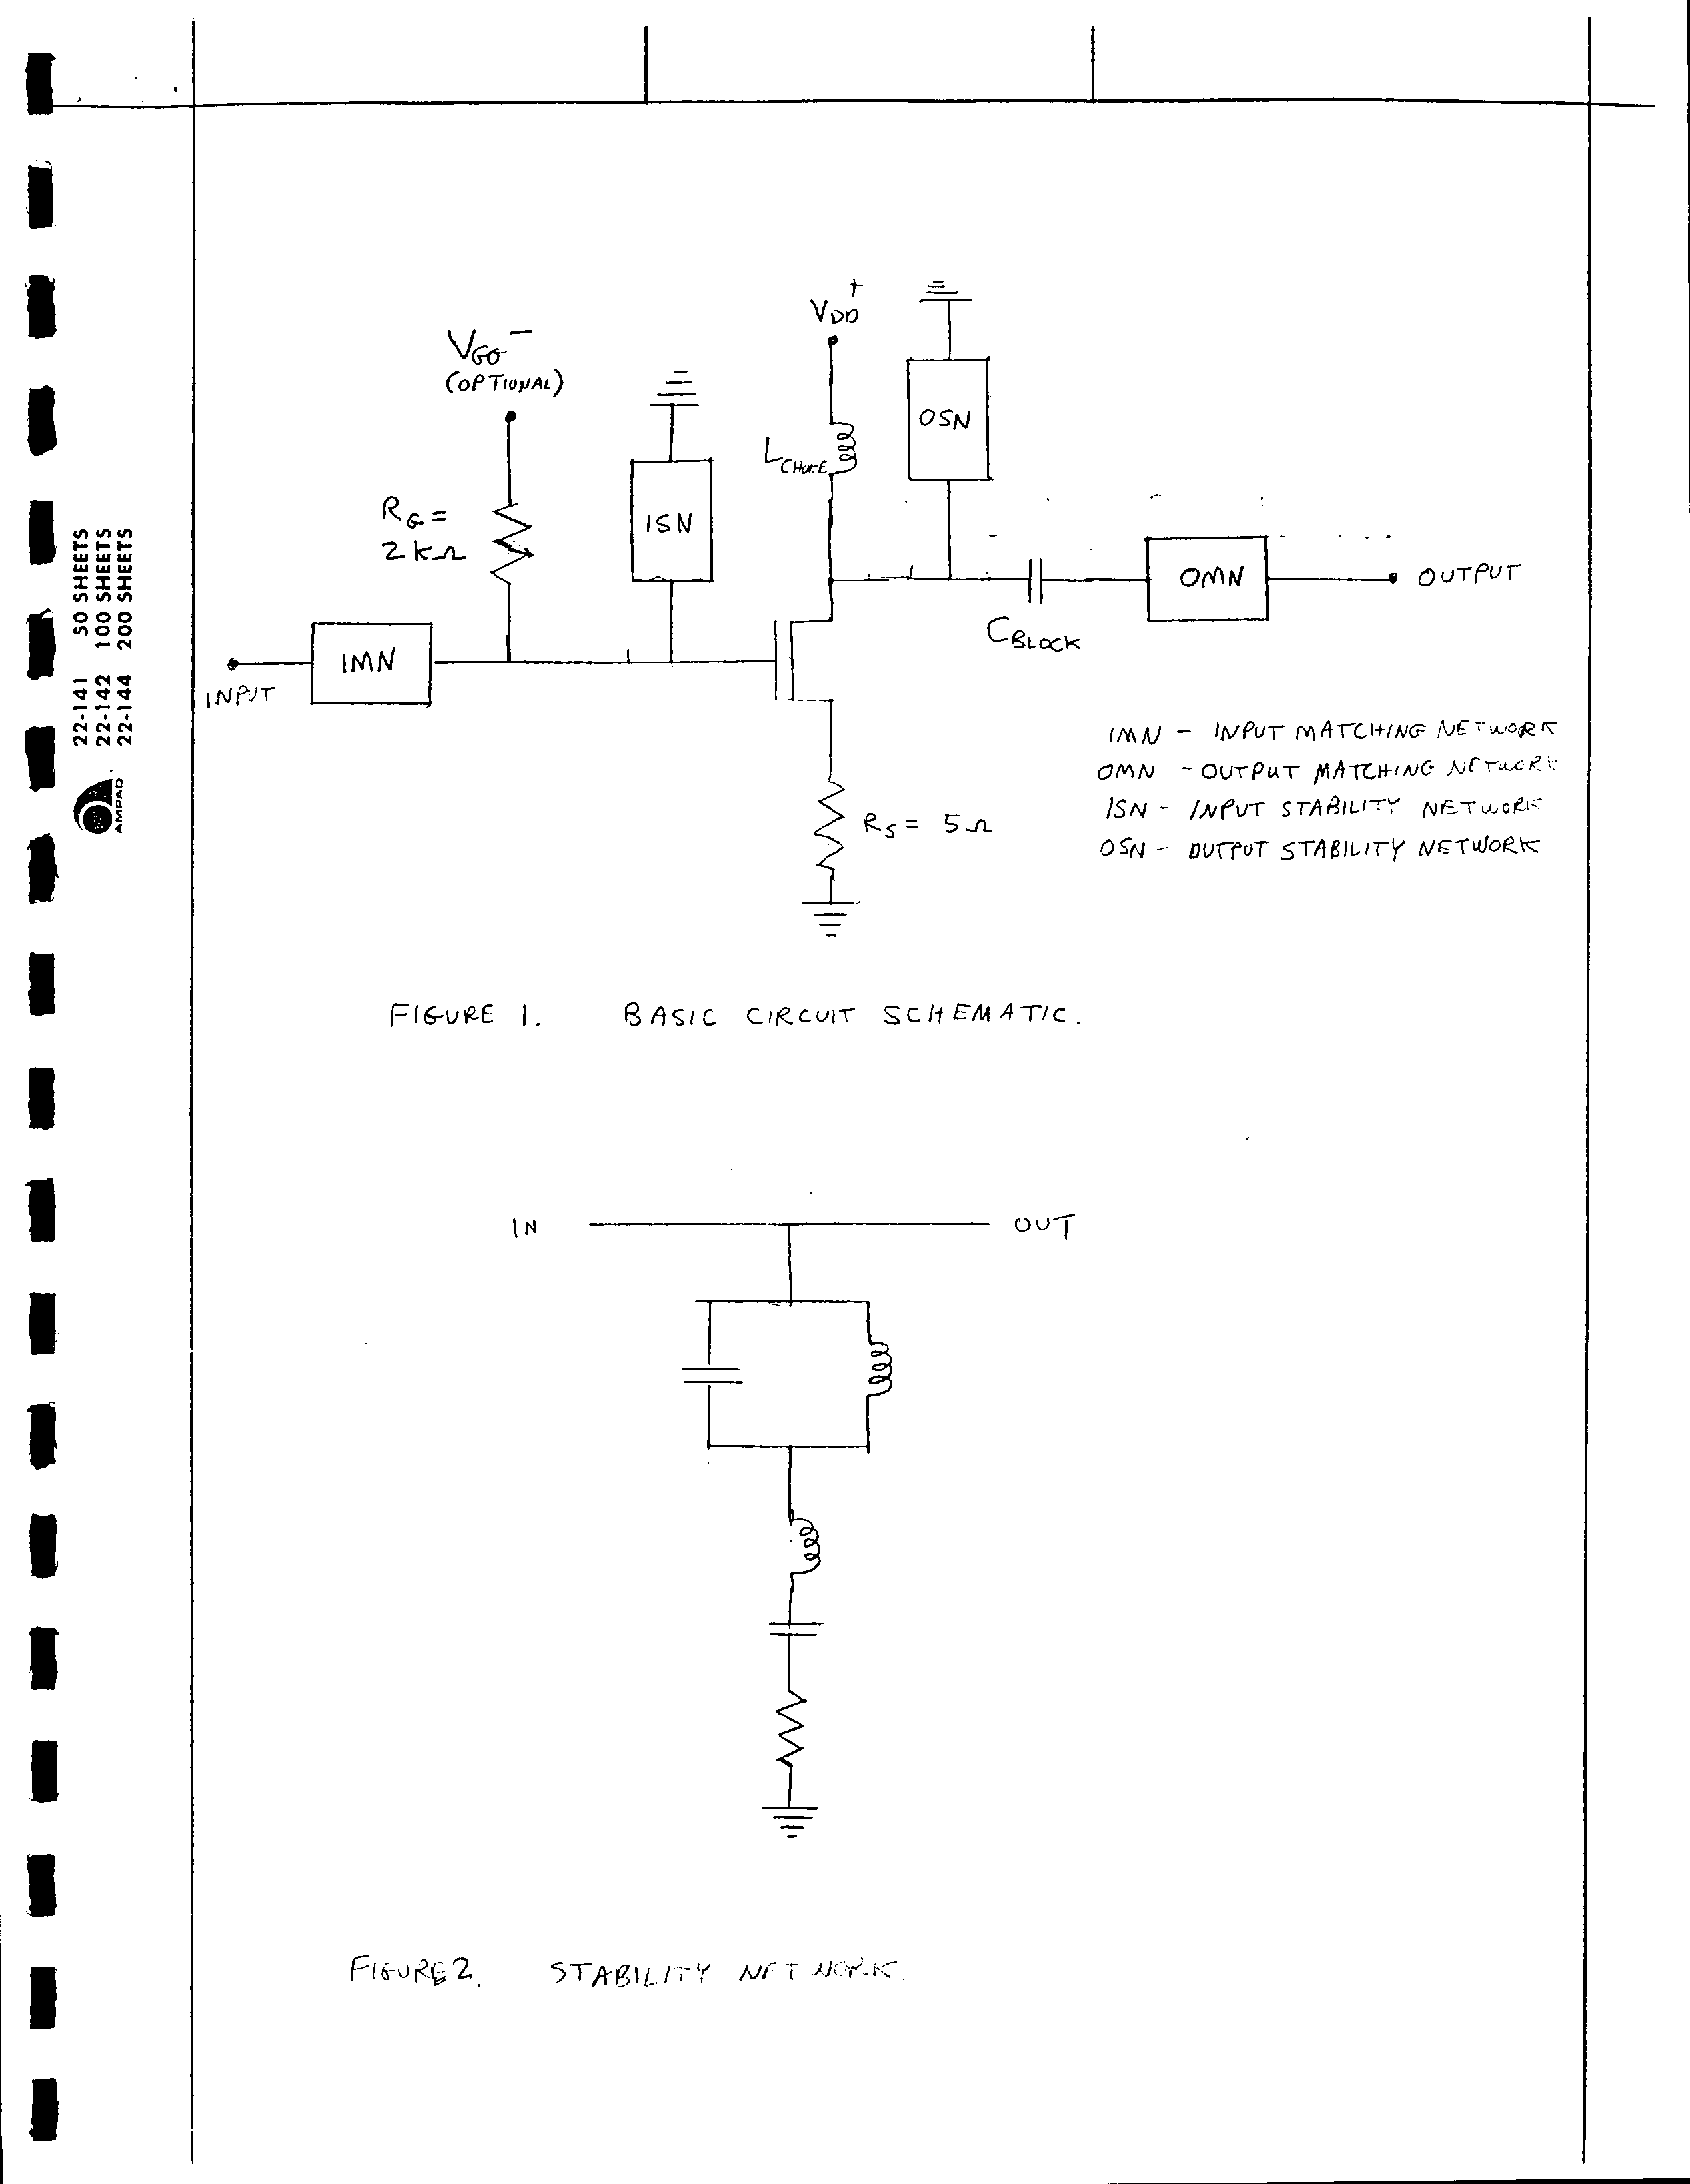 22-141 50 SHEETS
22-142 100 SHEETS
22-144 200 SHEETS
AMPAD
VDD+
VGG-
(OPTIONAL)
OSN
LCHOKE
RG =
2 kΩ
ISN
OMN
OUTPUT
CBLOCK
IMN
INPUT
IMN - INPUT MATCHING NETWORK
OMN - OUTPUT MATCHING NETWORK
ISN - INPUT STABILITY NETWORK
OSN - OUTPUT STABILITY NETWORK
RS = 5Ω
FIGURE 1. BASIC CIRCUIT SCHEMATIC.
IN
OUT
FIGURE 2. STABILITY NETWORK.